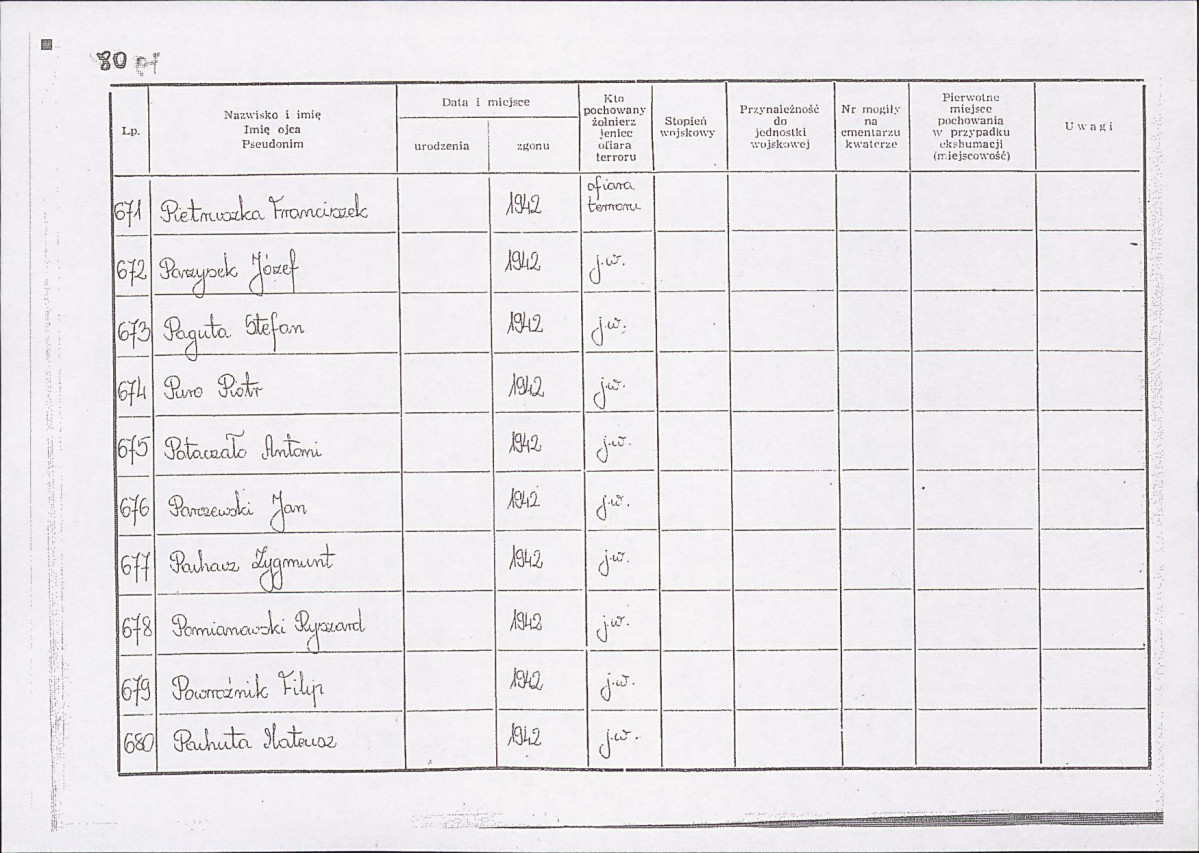 80
Lp.
Nazwisko i imię
Imię ojca
Pseudonim
Data i miejsce
urodzenia
zgonu
Kto
pochowany
żołnierz
jeniec
ofiara
terroru
Stopień
wojskowy
Przynależność
do
jednostki
wojskowej
Nr mogiły
na
cmentarzu
kwaterze
Pierwotne
miejsce
pochowania
w przypadku
ekshumacji
(miejscowość)
Uwagi
671 Pietruszka Franciszek 1942 ofiara
terroru
672 Parzysek Józef 1942 j.w.
673 Paguta Stefan 1942 j.w.
674 Puro Piotr 1942 j.w.
675 Potaczało Antoni 1942 j.w.
676 Parczewski Jan 1942 j.w.
677 Pachacz Zygmunt 1942 j.w.
678 Pomianowski Ryszard 1942 j.w.
679 Powroźnik Filip 1942 j.w.
680 Pachuta Mateusz 1942 j.w.